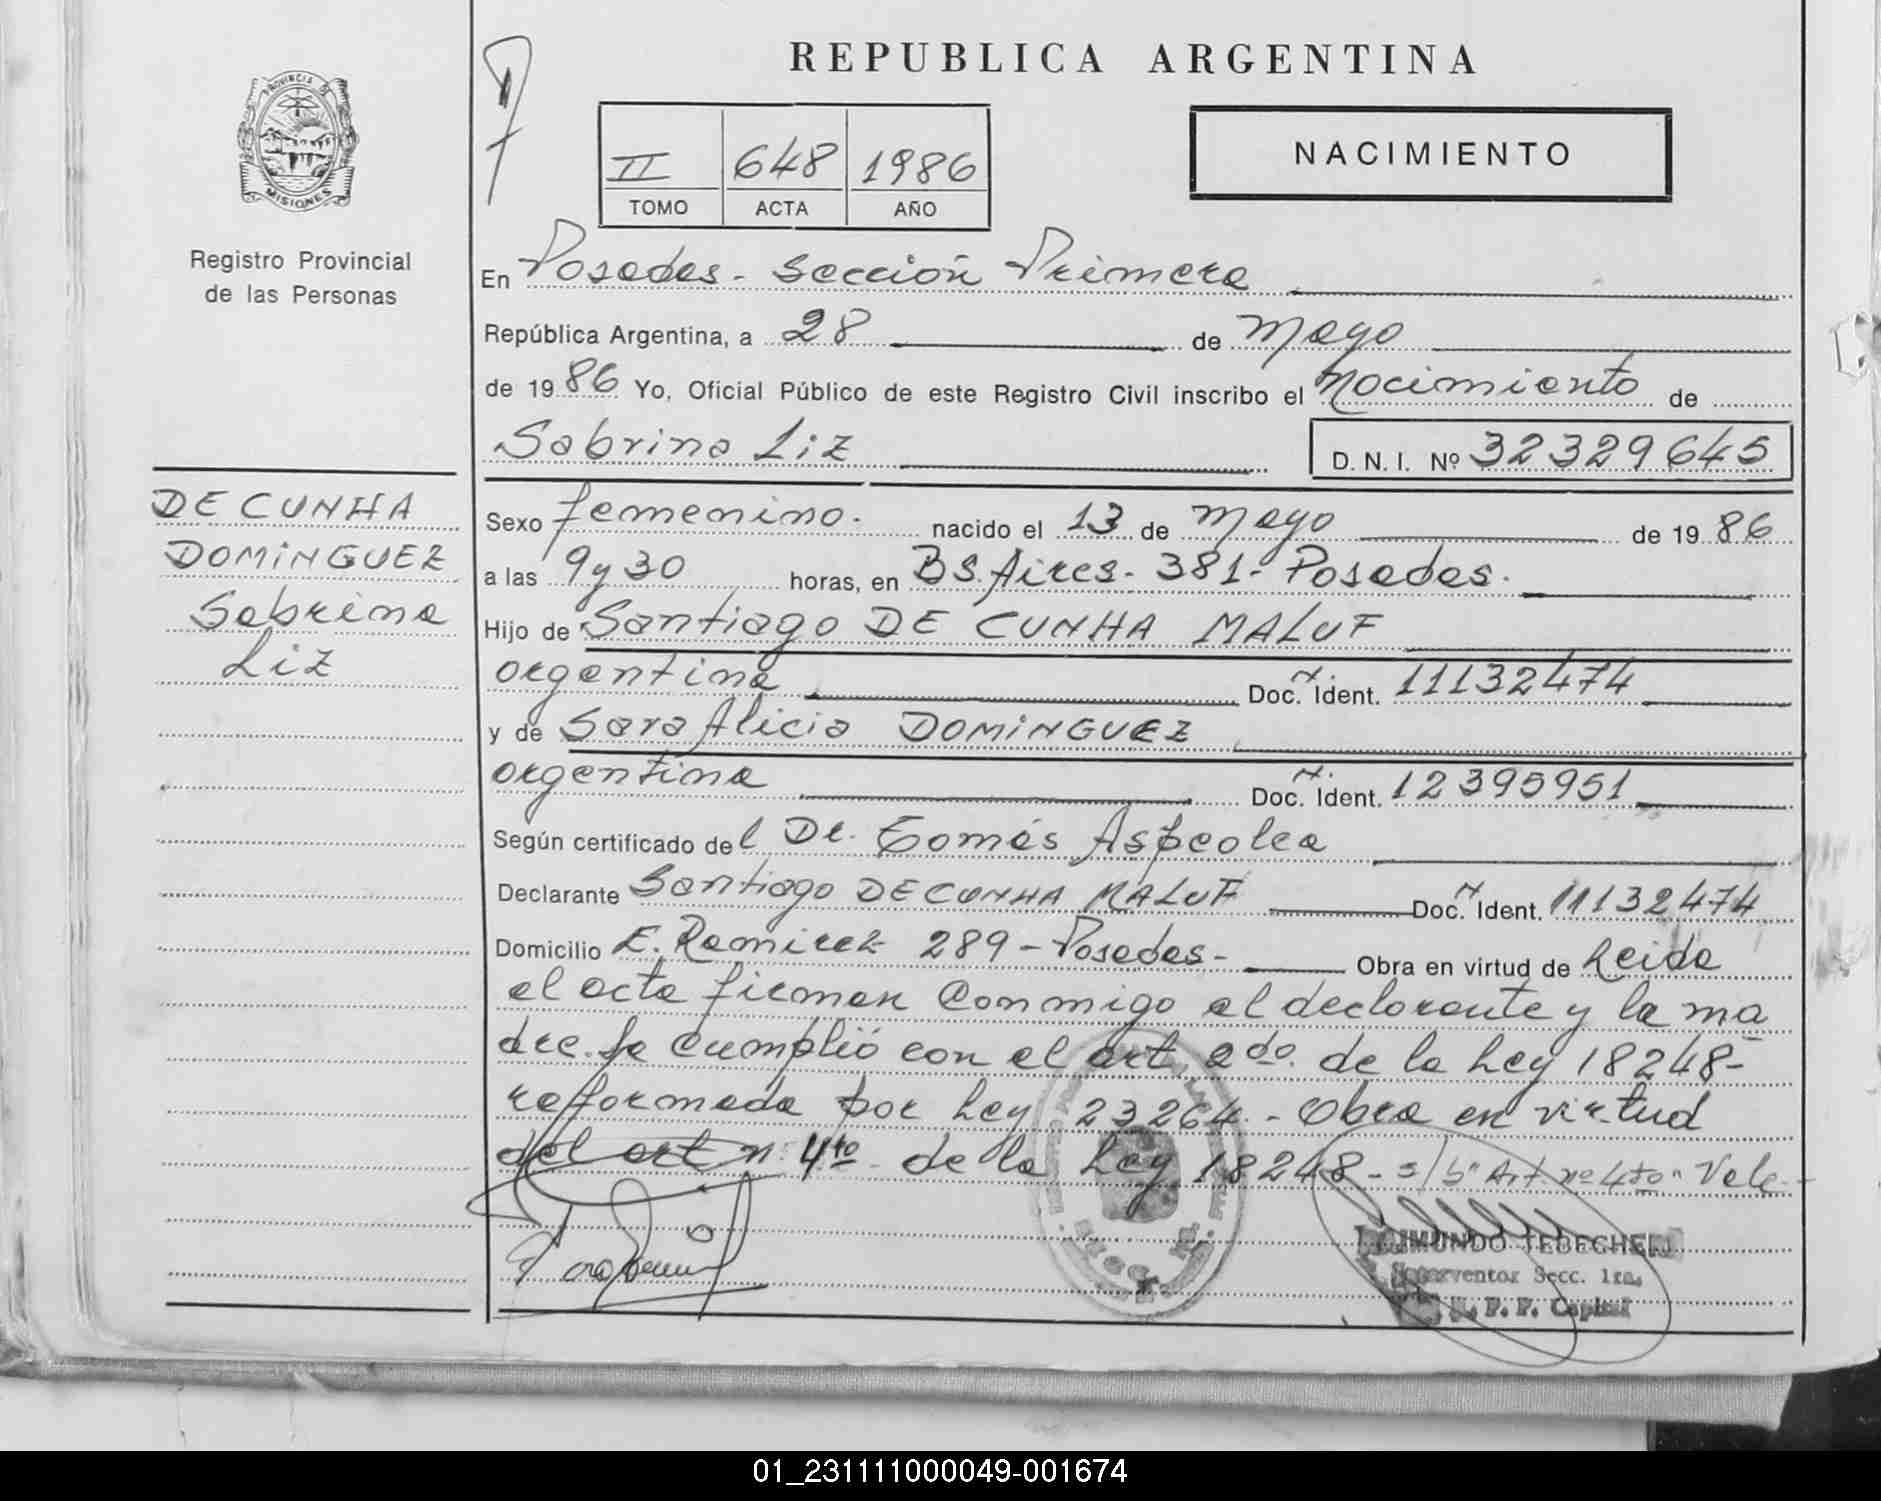 REPUBLICA ARGENTINA
PROVINCIA DE
MISIONES
Registro Provincial
de las Personas
II 648 1986
TOMO ACTA AÑO
NACIMIENTO
En Posadas - Sección Primera
República Argentina, a 28 de Mayo
de 19 86 Yo, Oficial Público de este Registro Civil inscribo el Nacimiento de
Sabrina Liz D.N.I. Nº 32329645
DE CUNHA
DOMINGUEZ
Sabrina
Liz
Sexo femenino. nacido el 13 de Mayo de 19 86
a las 9 y 30 horas, en BS. Aires - 381 - Posadas.
Hijo de Santiago DE CUNHA MALUF
argentina Doc. N. Ident. 11132474
y de Sara Alicia DOMINGUEZ
argentina Doc. N. Ident. 12395951
Según certificado del Dr. Tomás
Declarante Santiago DE CUNHA MALUF Doc. N. Ident. 11132474
Domicilio E. Ramirez 289 - Posadas - Obra en virtud de Leida
el acta firman conmigo el declarante y la ma
dre. Se cumplió con el art. 2do. de la Ley 18248 -
reformada por Ley 23264. - Obra en virtud
del art n. 4to. de la Ley 18248 - s/b" Art nº 4to" Vale -
RAIMUNDO
Interventor Secc. 1ra.
R. P. P. Capital
01_231111000049-001674